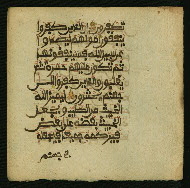 تكفرون ان الذين كفروا
ينفقون امولهم ليصدوا
عن سبيل الله فسينفقونها
ثم تكون عليهم حسرة ثم
يغلبون والذين كفروا الى
جهنم يحشرون ليميز الله
الخبيث من الطيب ويجعل
الخبيث بعضه على بعض
فيركمه جميعا فيجعله
في جهنم